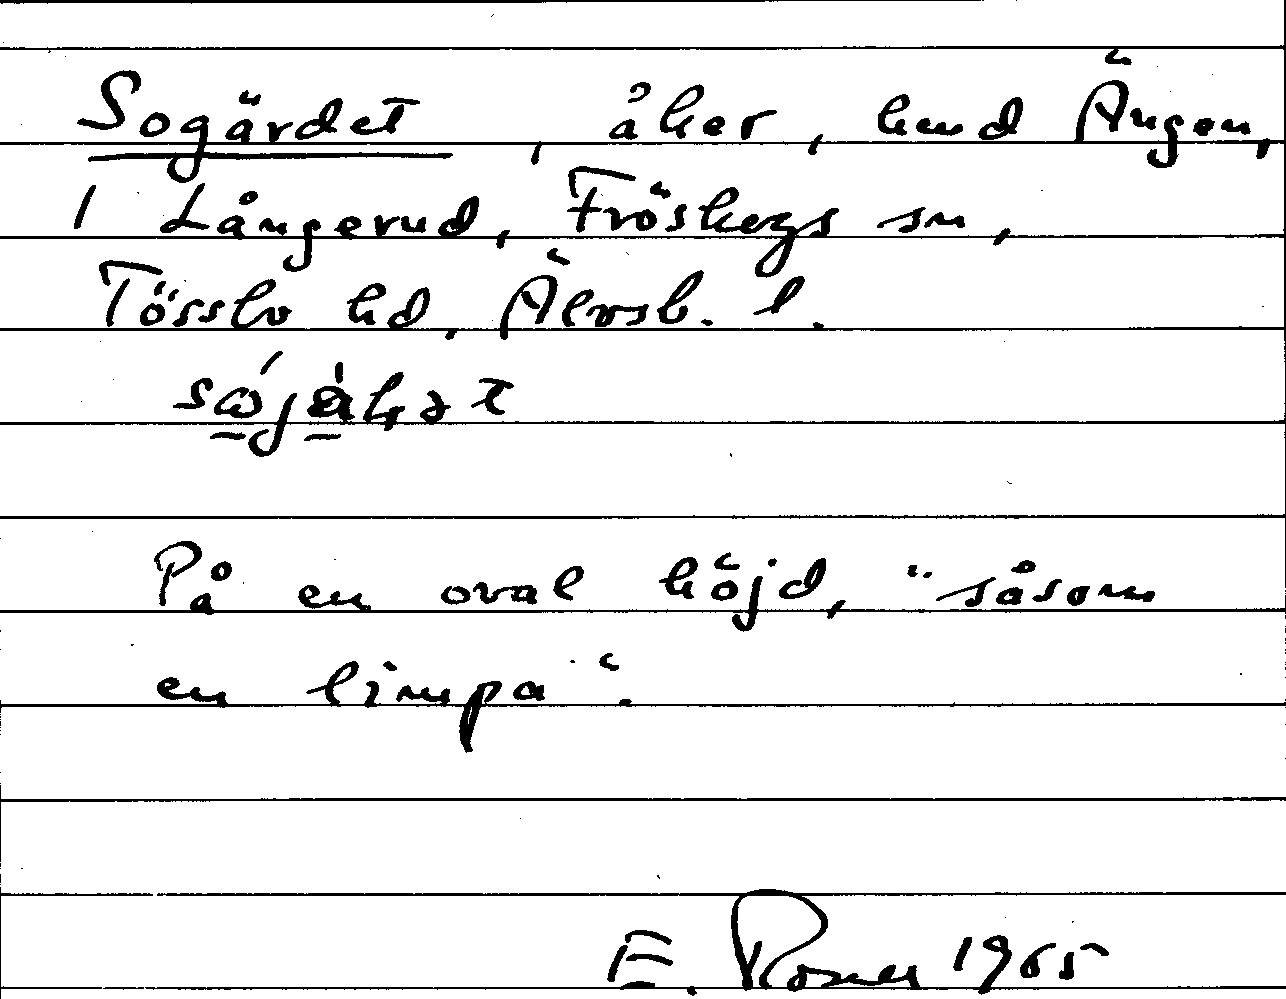 Sogärdet, åker, hmd Ängen,
i Långerud, Fröskogs sn,
Tössbo hd, Älvsb. l.
På en oval höjd, "såsom
en limpa".
E. Rosner 1965